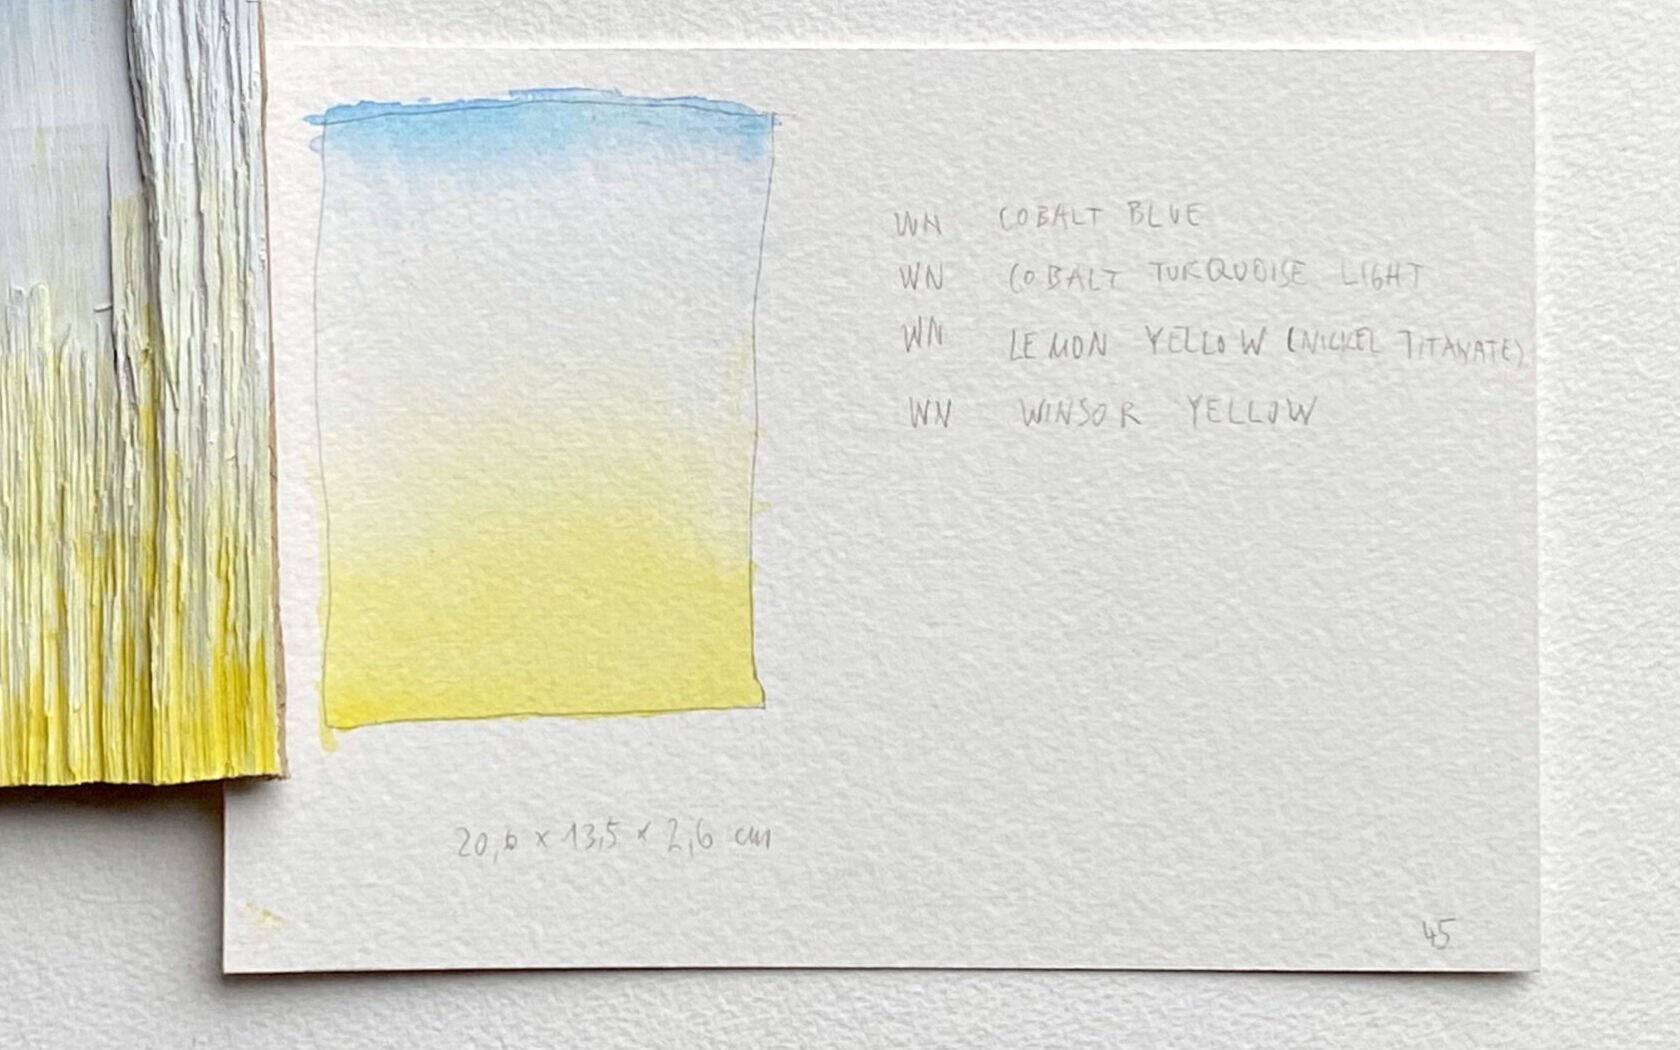 WN COBALT BLUE
WN COBALT TURQUOISE LIGHT
WN LEMON YELLOW (NICKEL TITANATE)
WN WINSOR YELLOW
20,6 x 13,5 x 2,6 cm
45